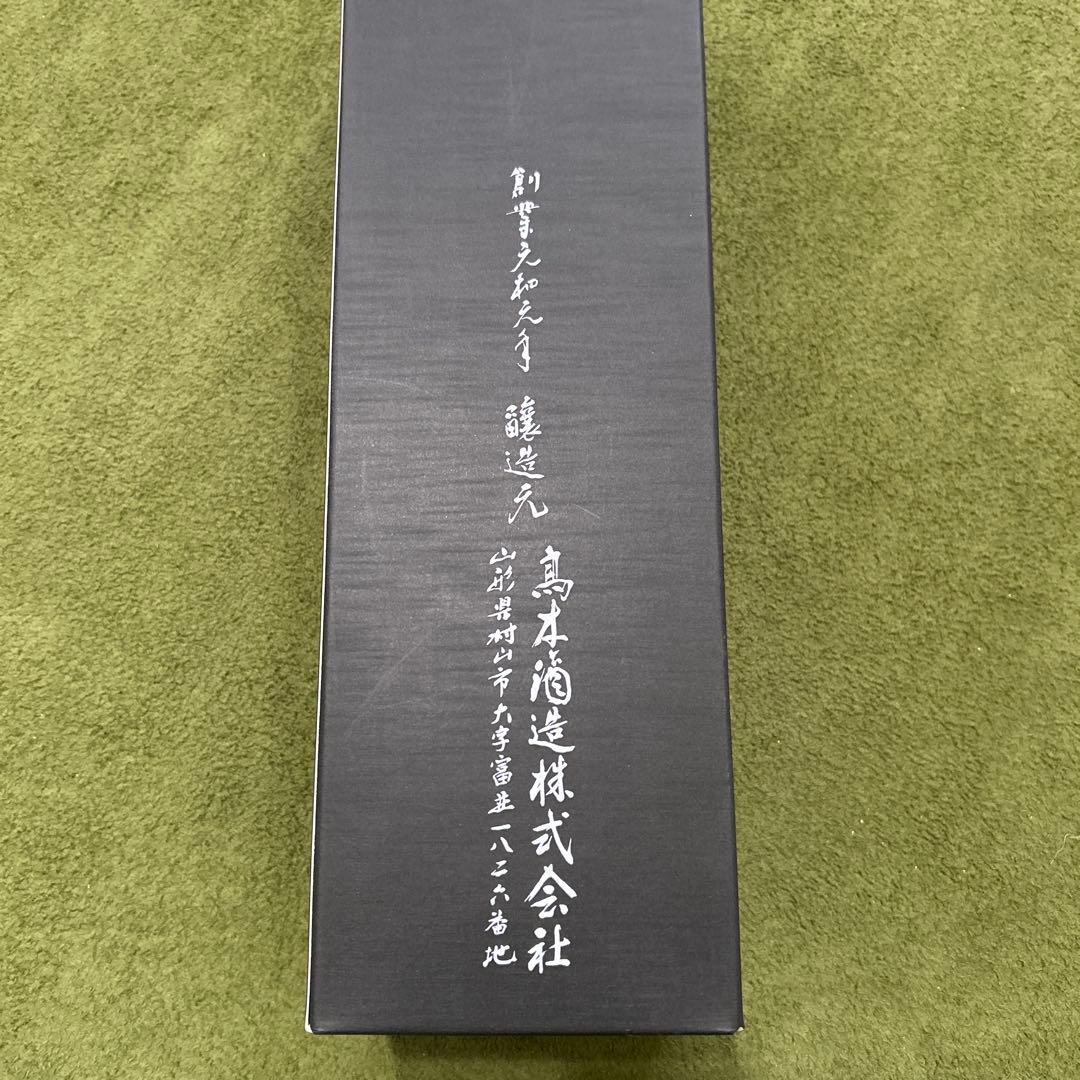 創業元和元年
醸造元
高木酒造株式会社
山形県村山市大字富並一八二六番地